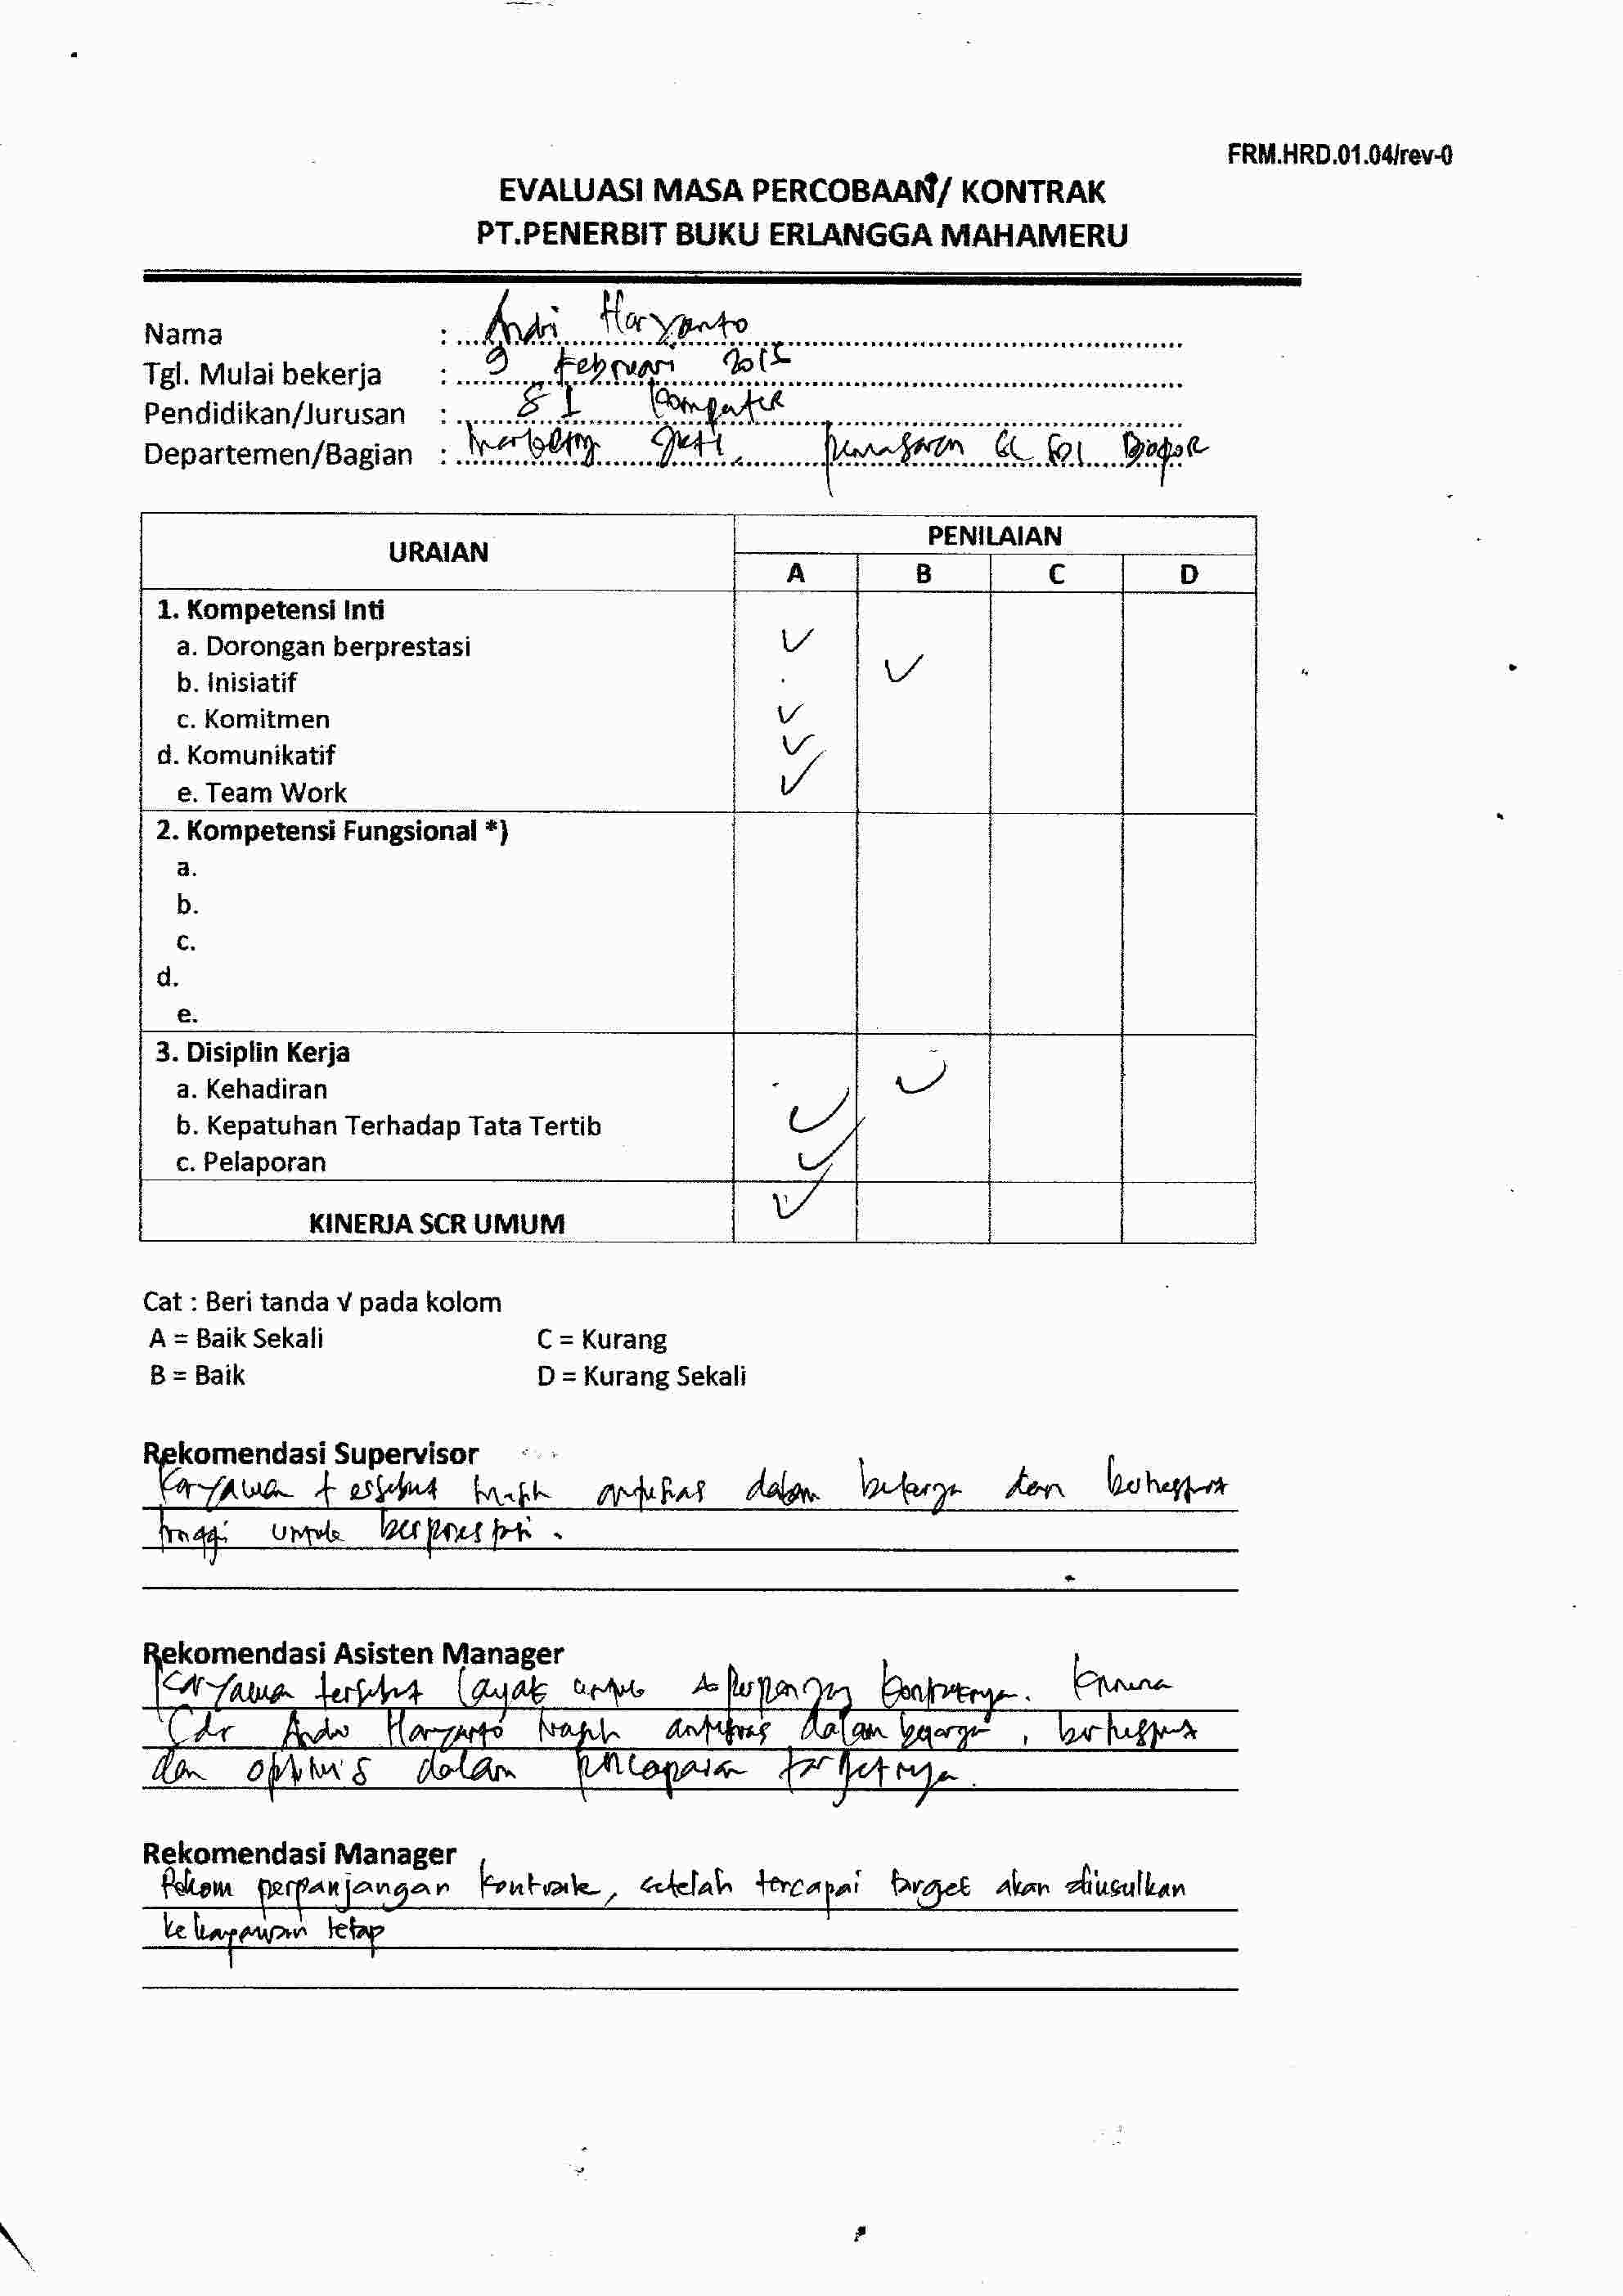 FRM.HRD.01.04/rev-0
EVALUASI MASA PERCOBAAN/ KONTRAK
PT.PENERBIT BUKU ERLANGGA MAHAMERU
Nama : Andri Haryanto
Tgl. Mulai bekerja : 9 Februari 2015
Pendidikan/Jurusan : S1 Komputer
Departemen/Bagian : Marketing
URAIAN PENILAIAN
A B C D
1. Kompetensi Inti
a. Dorongan berprestasi √
b. Inisiatif √
c. Komitmen √
d. Komunikatif √
e. Team Work √
2. Kompetensi Fungsional *)
a.
b.
c.
d.
e.
3. Disiplin Kerja
a. Kehadiran √
b. Kepatuhan Terhadap Tata Tertib √
c. Pelaporan √
KINERJA SCR UMUM √
Cat : Beri tanda √ pada kolom
A = Baik Sekali C = Kurang
B = Baik D = Kurang Sekali
Rekomendasi Supervisor
Karyawan tersebut masih antusias dalam bekerja dan
tinggi untuk berprestasi.
Rekomendasi Asisten Manager
Karyawan tersebut layak untuk kontraknya. karena
Sdr Andri Haryanto masih antusias dalam bekerja,
dan optimis dalam pencapaian targetnya.
Rekomendasi Manager
perpanjangan kontrak, setelah tercapai target akan diusulkan
ke karyawan tetap